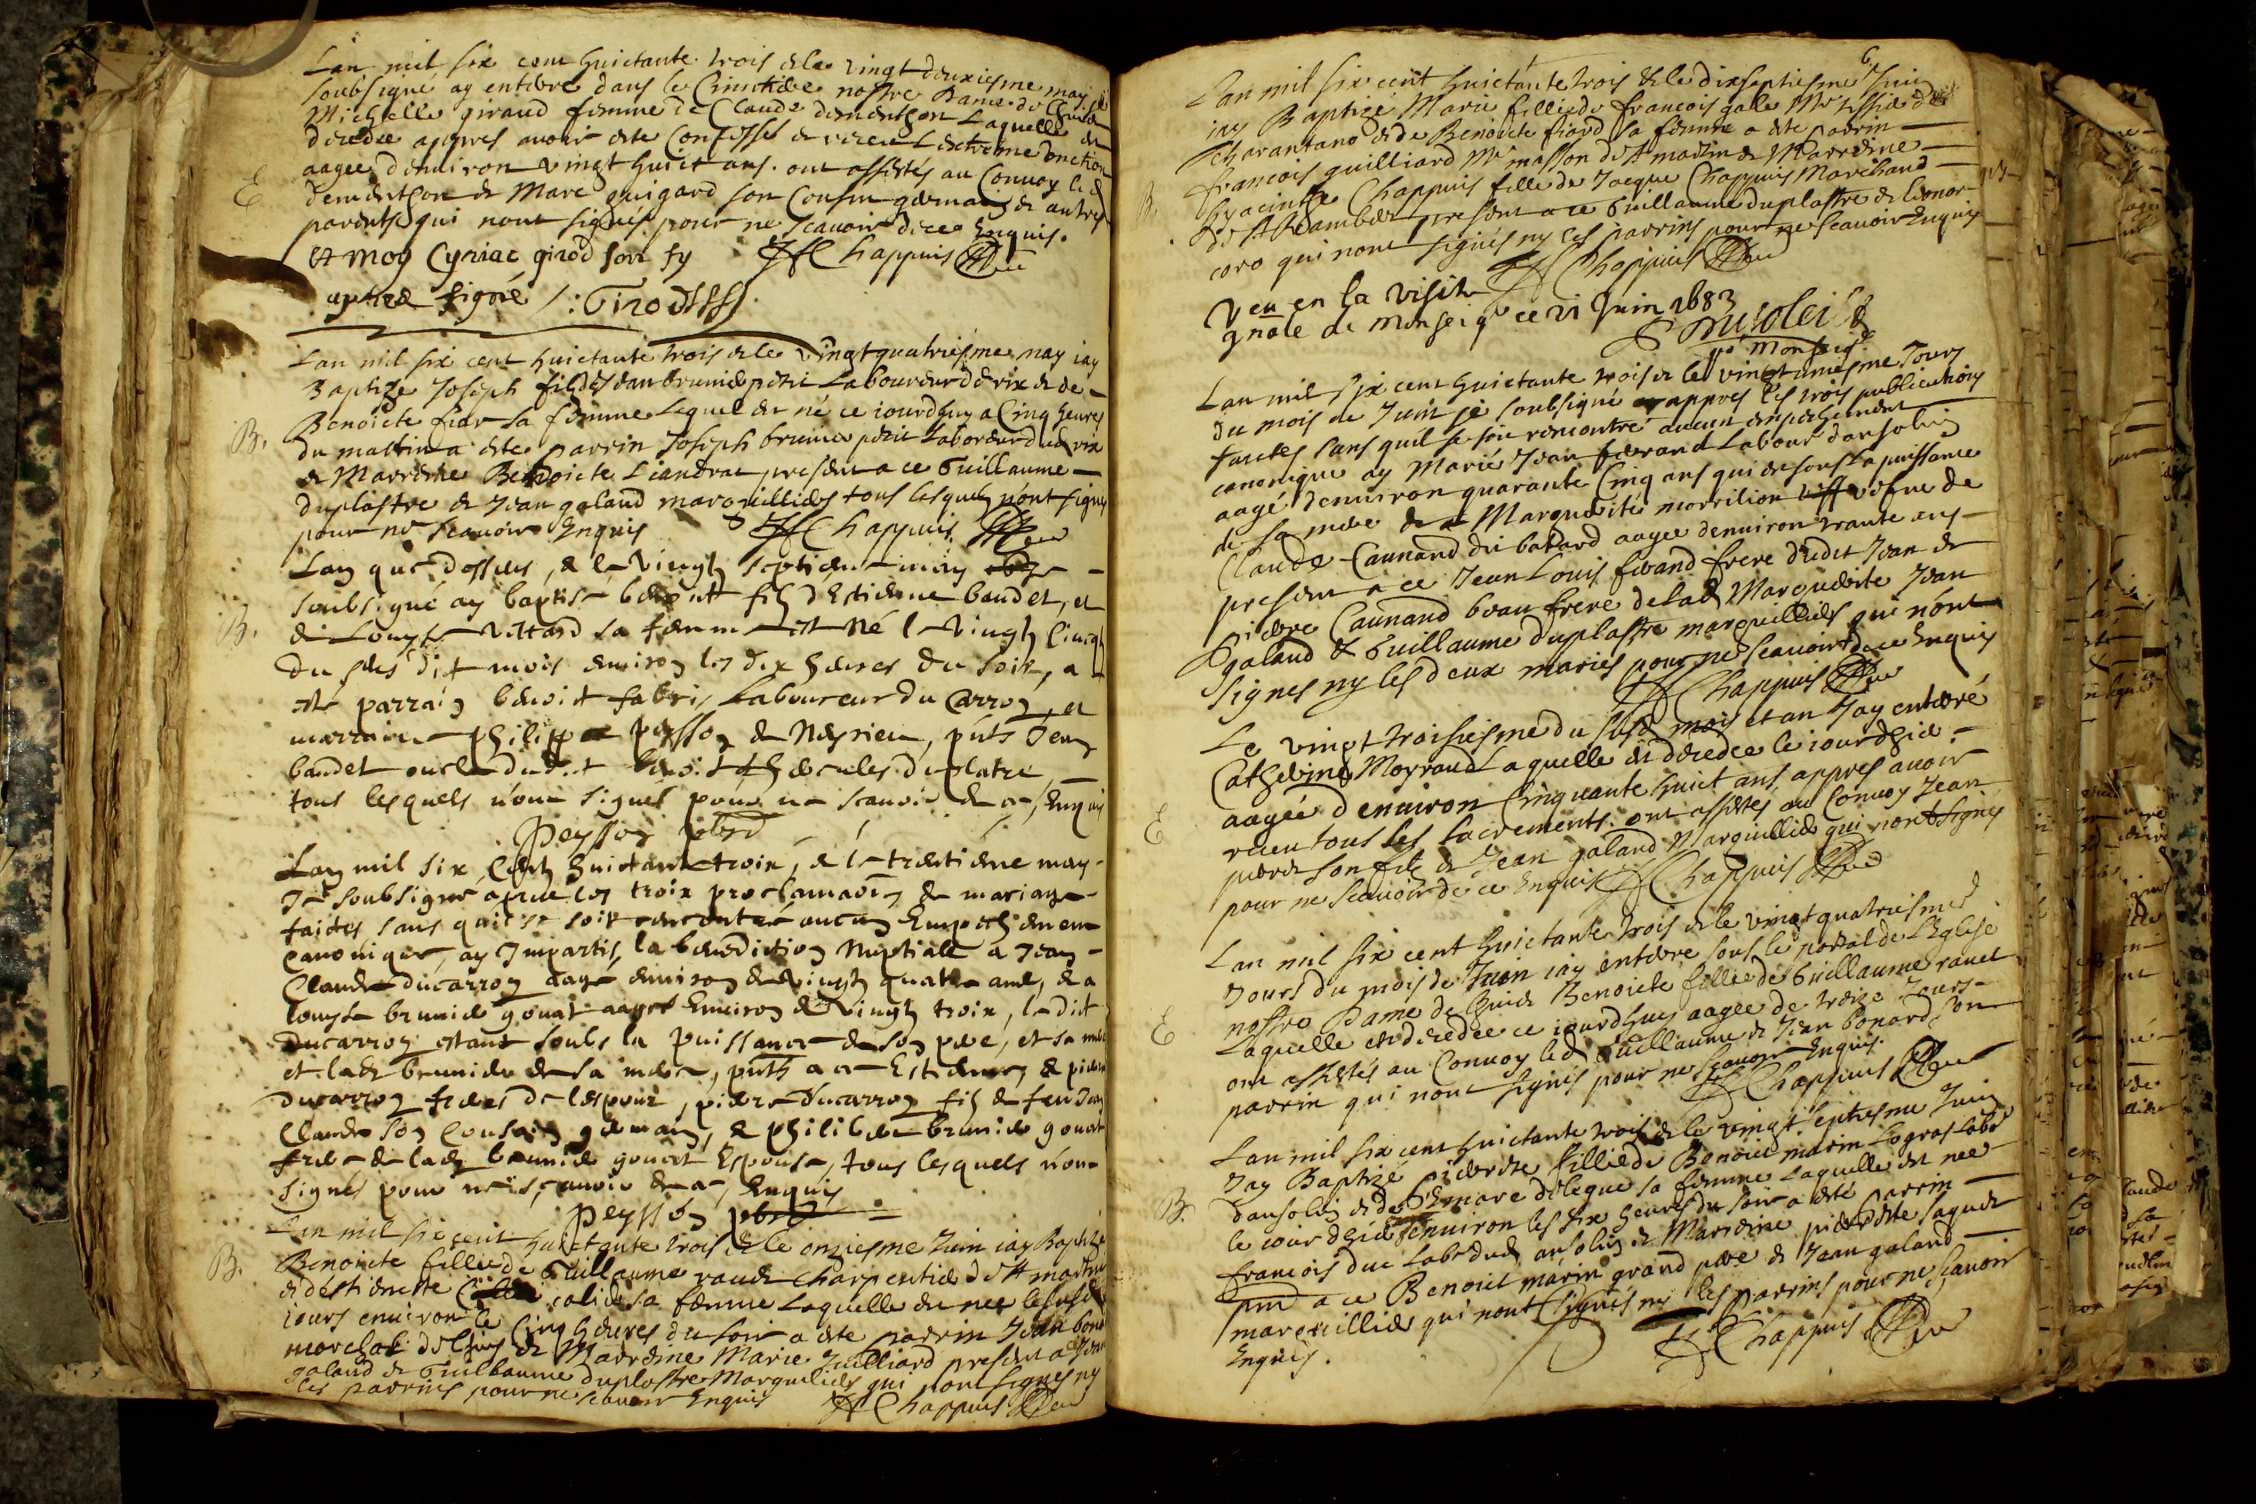 Lan mil six cent huictante trois & le vingt deuxiesme may je
soubsigné ay enterre dans le Cimetiere nostre Dame de
Michelle giraud femme de Claude dementhon Laquelle est
decedee appres avoir este Confessee et receu L extreme onction
aagee denuiron vingt huict ans. ont assistés au Convoy le d
E
dementhon & Marc guigard son Cousin germain & autres
parents qui nont signés pour ne scavoir de ce Enquis.
Et moy Cyriac girod son fy Chappuis
apres signé Girod
Lan mil six cent huictante trois & le vingt quatriesme may iay
Baptize Joseph fils de Jean brunier petit Laboureur & de
Benoicte fiar sa femme Lequel est né ce iourdhuy a Cinq heures
B.
du mattin a este parrin Joseph brunier petit Laboureur
& Marreine Benoicte Liandrat present a ce Guillaume
duplastre & Jean galand marguilliers tous lesquels n'ont signés
pour ne scavoir Enquis Chappuis
Lan que dessus, & le vingt septieme may
soubsigné ay baptise benoit filz dEstienne baudet, et
B.
de Louyse vittard sa femme est Né le vingt cinq
du susdit mois environ les dix heures du soir, a
este parrain benoit fabri Laboureur du Carron, et
marraine philippe peysson de Neyrieu, pnts Jean
baudet oucle dudit benoit & hercules duplatre
tous lesquels n'ont signes pour ne scavoir de ce, Enquis
Peysson pbre
Lan mil six Cent huictante troix, & le trentieme may
Je soubsigné apres les troix proclamations de mariage
faites sans quil se soit rencontré aucun Empechement
canonique, ay Imparti la benediction Nuptiale a Jean
Claude ducarron aagé environ de vingt quatre ans, & a
louyse brunier gonat aagee Environ de vingt troix, ledit
ducarron estant soubs la puissance de son pere, et sa mere
et lad brunier de sa mere, pnts a ce Estienne & pierre
ducarron freres de lespoux, pierre ducarron filz de feu Jean
Claude son Cousin germain, & philibert brunier gonat
frere de lad brunier gonat Espouse, tous lesquels n'ont
signes pour ne scavoir de ce, Enquis
peysson pbre
Lan mil six cent huictante trois & le onziesme Juin iay Baptize
B.
Benoicte fillie de Guillaume ravet Charpentier de St martin
& destiennette calier sa femme Laquelle est nee le susd
iours environ le Cinq heures du soir a este parrin Jean bonard
mareschal & Marreine Marie Juilliard present a Jean
galand & Guillaume duplastre Marguilliers qui nont signes ny
les parrins pour ne scavoir Enquis Chappuis
6
Lan mil six cent huictante trois & le dixseptiesme Juin
iay Baptize Marie fillie de francois galle Mr
Scharantano & de Benoicte fiard sa femme a este parrin
francois guilliard Mr masson de St martin & Marreine
B.
hyacinthe Chappuis fille de Jacque Chappuis Marchand
de St Rambert present a ce Guillaume duplastre & Leonor
coro qui nont signés ny les parrins pour ne scavoir Enquis
Chappuis
Veu en la visite
gnale de Monseigr ce 21 Juin 1683
Lan mil six cent huictante trois & le vingt uniesme Jours
du mois de Juin je soubsigné ay appres les trois publications
faictes sans quil se soit rencontré aucun empechement
canonique ay Marié Jean ferand Labour dansolin
aagé denuiron quarante Cinq ans qui est sous la puissance
de sa mere & a Marguerite morrilion vefue de
Claude Caunand dit batard aagee denuiron trante ans
present a ce Jean Louis ferand frere dudit Jean &
Pierre Caunand beau frere de lad Marguerite Jean
galand & Guillaume duplastre marguilliers qui nont
signes ny les deux mariés pour ne scavoir de ce Enquis
Chappuis
Le vingt troisiesme du susd mois et an Jay enterré
Catherine Moyraud Laquelle est decedee le iour dhier
aagée denuiron Cinquante huict ans appres avoir
E
receu tous les sacrements. ont assistés au Convoy Jean
pierre son filz & Jean galand Marguillier qui nont signés
pour ne scavoir de ce Enquis Chappuis
Lan mil six cent huictante trois & le vingt quatriesme
Jours du mois de Juin iay enterre sous le portal de LEglise
nostre Dame de Benoicte fillie de Guillaume ravet
E
Laquelle est decedee ce iourdhuy aagee de treize Jours
ont assistés au Convoy led Guillaume & Jean bonard son
parrin qui nont signés pour ne scavoir Enquis.
Chappuis
Lan mil six cent huictante trois & le vingt septiesme Juin
Jay Baptizé Pierrete fillie de Benoict marin Logras Labr
B.
dansolin & de Pemare deleque sa femme Laquelle est nee
le iour dhier Environ les six heures du soir a esté parrin
francois duc Labr dud ansolin & Marreine pierrette saguer
pnt a ce Benoict marin grand pere & Jean galand
marguillier qui nont signés ny les parrins pour ne scavoir
Enquis. Chappuis